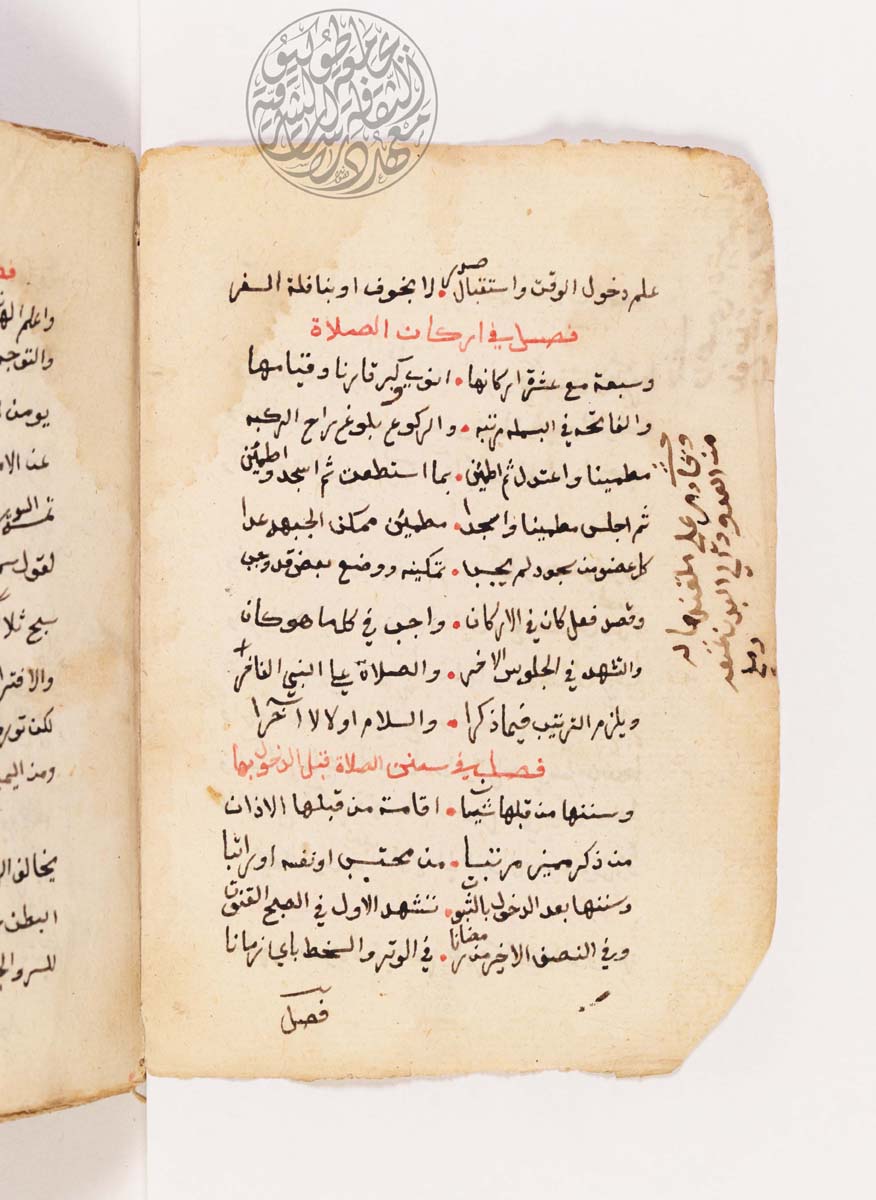 علم دخول الوقت واستقبال صدر لا بخوف او بنافلة السفر
فصل في اركان الصلاة
وسبعة مع عشرة اركانها انوي وكبر قارنا وقيامها
والفاتحه في البسمله مرتبه والركوع بلوغ راح الركبه
مطمينا واعتدل ثم اطمئن بما استطعت ثم اسجد واطمئن
ثم اجلس مطمينا واسجدا مطمئن ممكن الجبهه عدا
كل عضو من سجود لم يجبا تمكينه ووضع بعض قد وجب
وقصد فعل كان في الاركان واجب في كلما هو كان
والتشهد في الجلوس الاخر والصلاة على النبي الفاخر
ويلزم الترتيب فيما ذكرا والسلام اولا لا آخرا
فصل في سنن الصلاة قبل الدخول بها
وسننها من قبلها شيئان اقامة من قبلها الاذان
من ذكر مميز مرتبا من محتسب او نفسه او راتبا
وسننها بعد الدخول بالثبوت تشهد الاول في الصبح القنوت
وفي النصف الاخير من رمضانا في الوتر والسخط باي زمانا
فصل
فصل
واعلم
والتوجه
يومن
عن الا
لقول
سبح ثلا
والافترا
لكن تورك
ومن اليم
يخالف ال
البطن
للسر والج